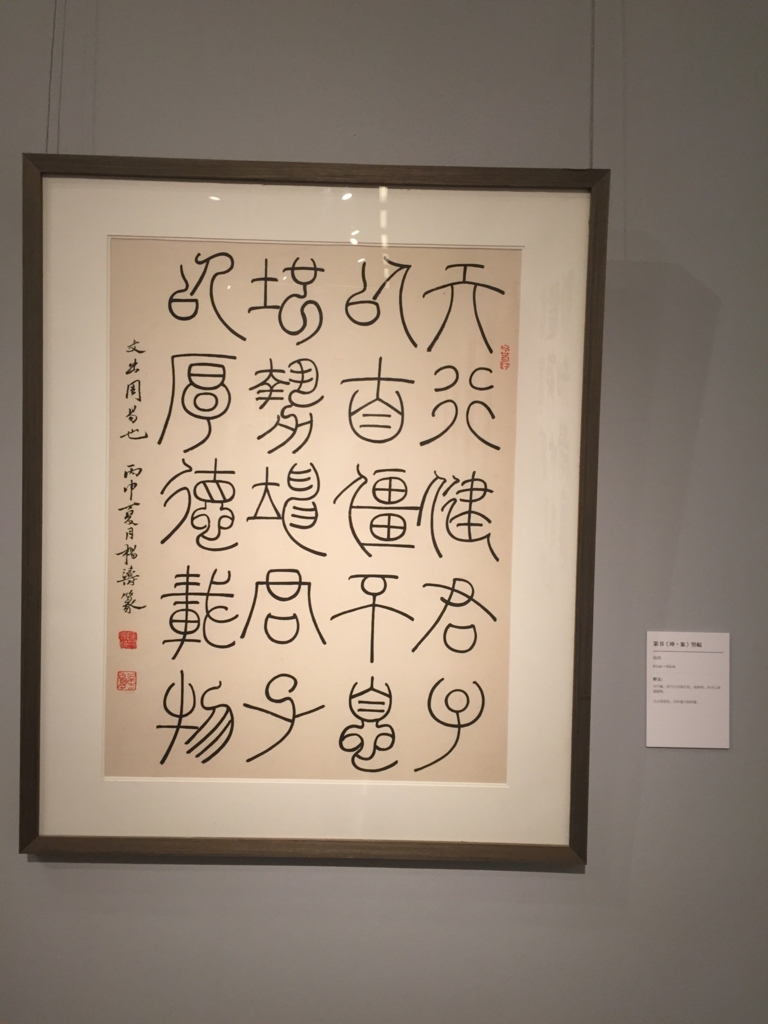 天行健君子
以自彊不息
地势坤君子
以厚德載物
文出周易也 丙申夏月楊濤篆
篆书《坤·象》竖幅
释文：